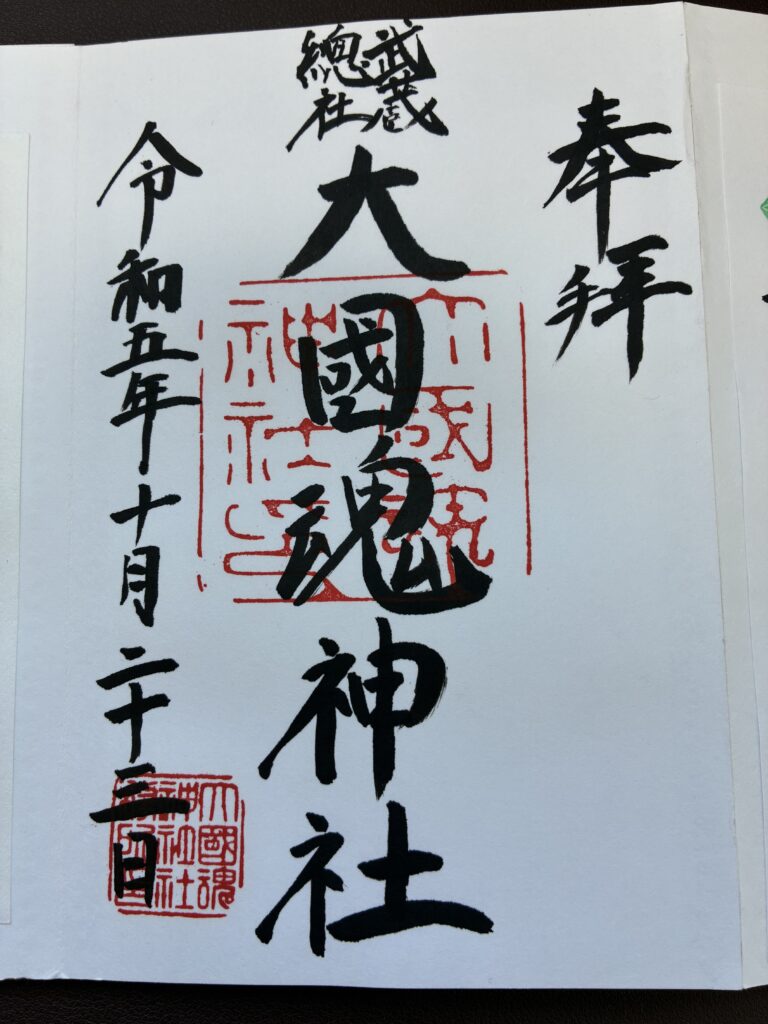 奉拝
武蔵
總社
大國魂神社
大國魂
神社印
令和五年十月二十三日
大國魂
神社